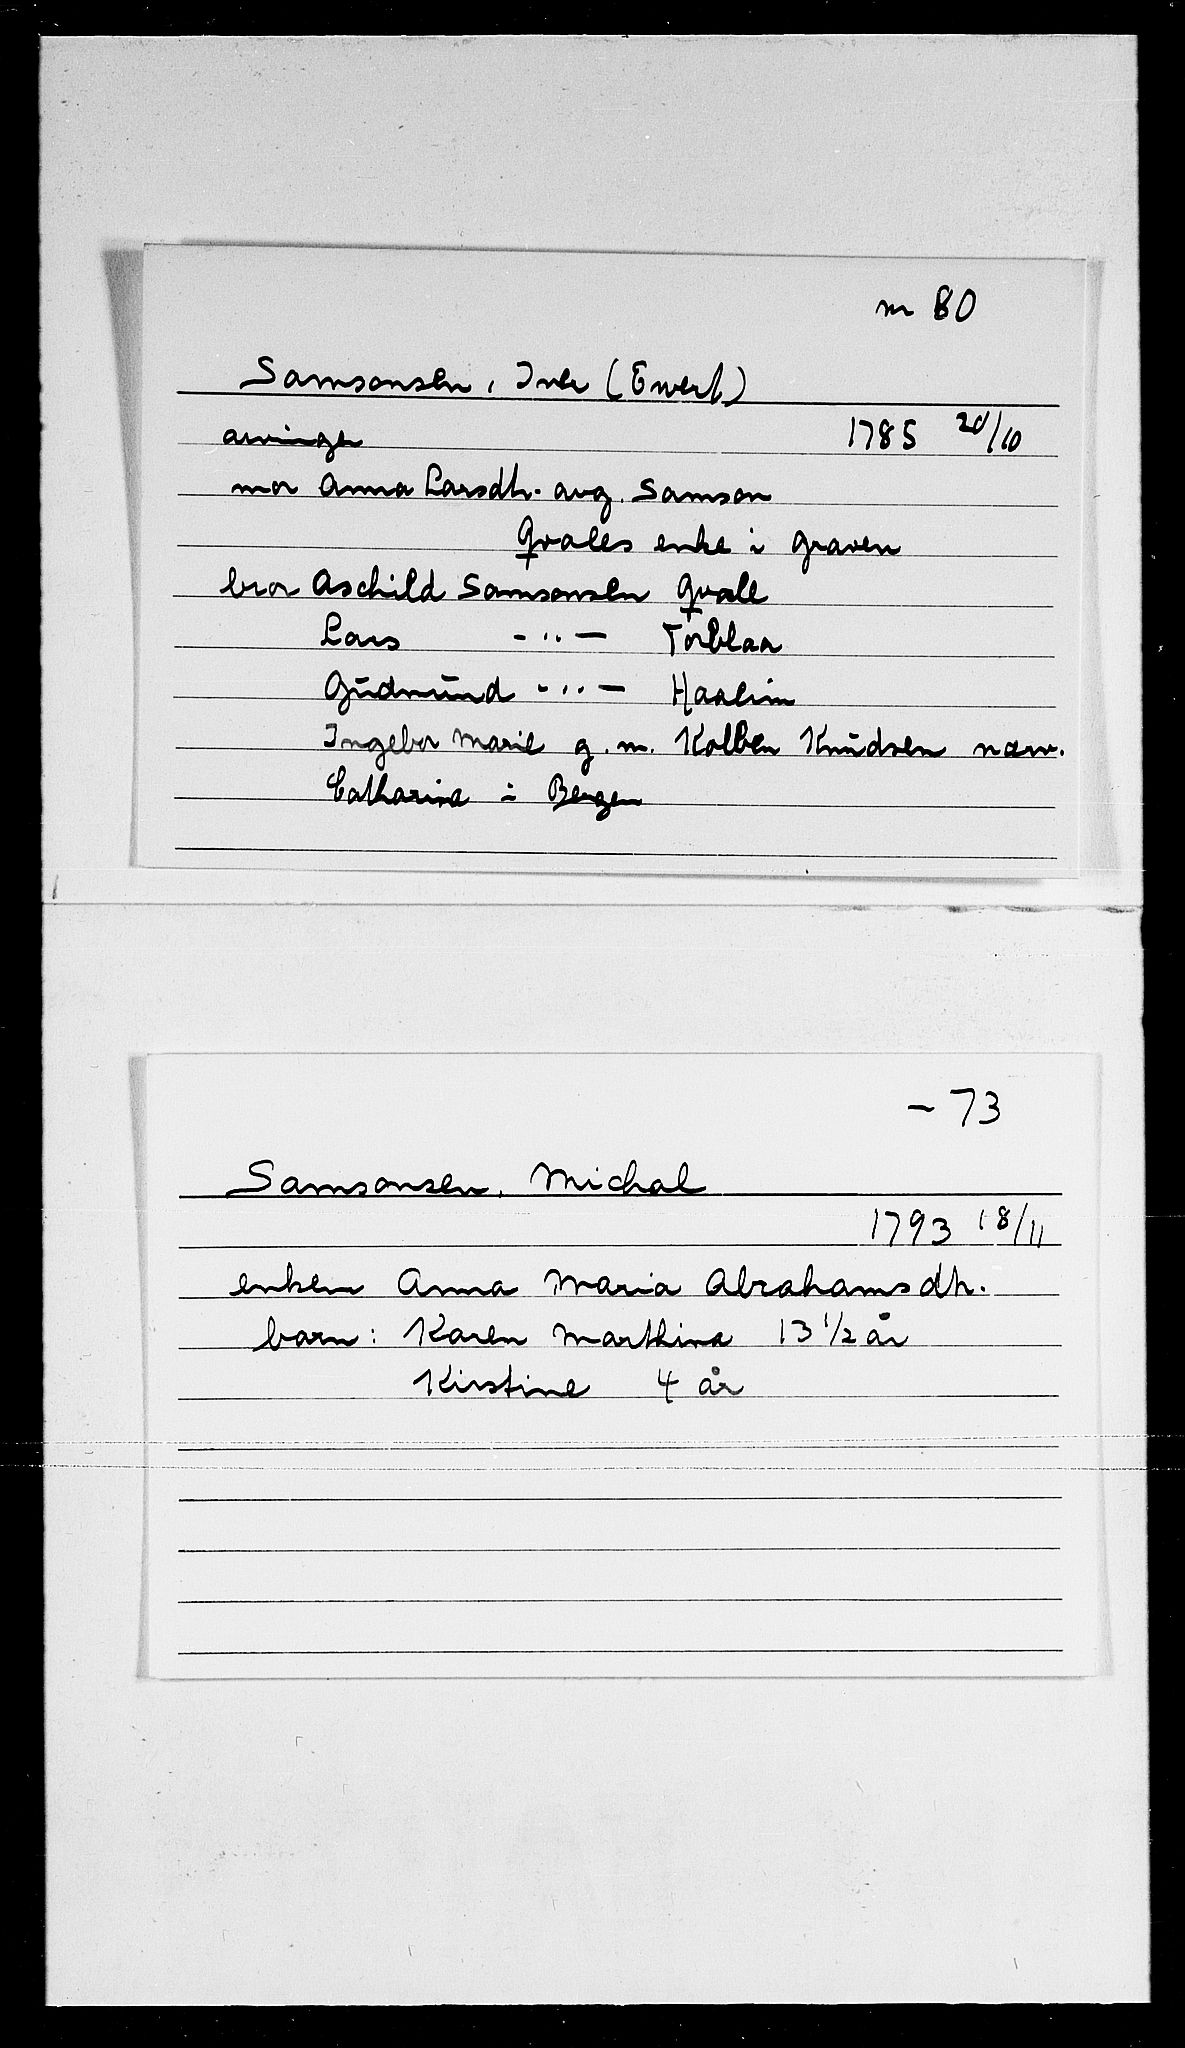 m 80
Samsonsen, Iver (Ewert)
arvinger 1785 20/10
mor Anna Larsdh. avg. Samson
Qvales enke i Graven
bror Aschild Samsonsen Qvale
Lars -"- Torblaa
Gudmund -"- Haaheim
Ingebor Marie g.m. Kolben Knudsen
Catharina i Bergen
- 73
Samsonsen, Michal
1793 18/11
enken Anna Maria Abrahamsdh.
barn: Karen Marthina 13 1/2 år
Kirstine 4 år